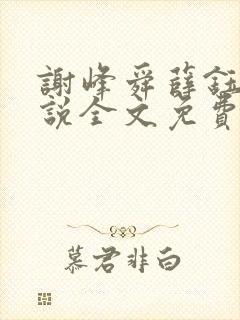 謝峰舜薛鈺
說全文免費
慕君非白